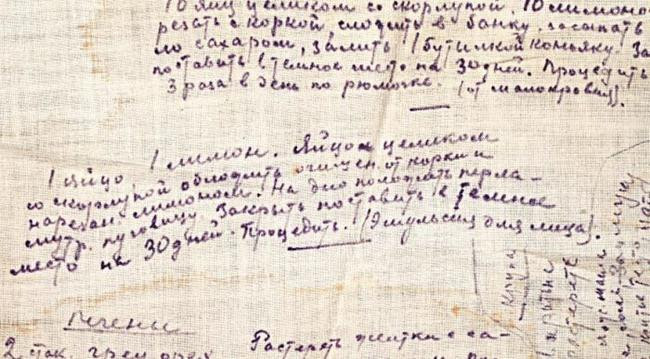 10 яиц целиком со скорлупой. 10 лимоно
резать с коркой, сложить в банку, засыпать
ло сахаром, залить 1 бутылкой коньяку. За
поставить в темное место на 30 дней. Процедить
3 раза в день по рюмочке. (от малокровия).
1 яйцо 1 лимон. Яйцо целиком
со скорлупой обложить очищен. от корки и
нарезан. лимоном. На дно положить перла-
мутр. пуговицу. Закрыть поставить в темное
место на 30 дней. Процедить. (Эмульсия для лица).
печени
2 стак. грец. орех
Растереть желтки с са-